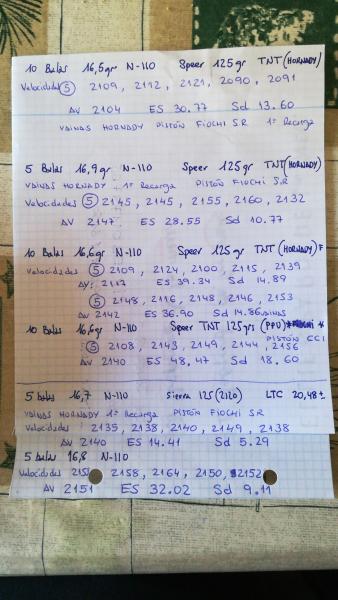 10 Balas 16,5gr N-110 Speer 125gr TNT (HORNADY)
Velocidades (5) 2109, 2112, 2121, 2090, 2091
AV 2104 ES 30.77 Sd 13.60
VAINAS HORNADY PISTÓN FIOCHI S.R 1ª Recarga
5 Balas 16,9gr N-110 Speer 125gr TNT (HORNADY)
VAINAS HORNADY 1ª Recarga PISTÓN FIOCHI S.R
Velocidades (5) 2145, 2145, 2155, 2160, 2132
AV 2147 ES 28.55 Sd 10.77
10 Balas 16,6gr N-110 Speer 125gr TNT (HORNADY) F
Velocidades (5) 2109, 2124, 2100, 2115, 2139
AV: 2117 ES 39.34 Sd 14.89
(5) 2148, 2116, 2148, 2146, 2153
AV 2142 ES 36.90 Sd 14.86 VAINAS
10 Balas 16,6gr N-110 Speer TNT 125grs (PPU)
PISTÓN CCI
(5) 2108, 2143, 2149, 2144, 2156
AV 2140 ES 48.47 Sd 18.60
5 balas 16,7 N-110 Sierra 125 (2120) LTC 20,48
VAINAS HORNADY 1ª Recarga PISTÓN FIOCHI S.R
Velocidades 2135, 2138, 2140, 2149, 2138
AV 2140 ES 14.41 Sd 5.29
5 balas 16,8 N-110
Velocidades 2158, 2164, 2150, 2152
AV 2151 ES 32.02 Sd 9.11